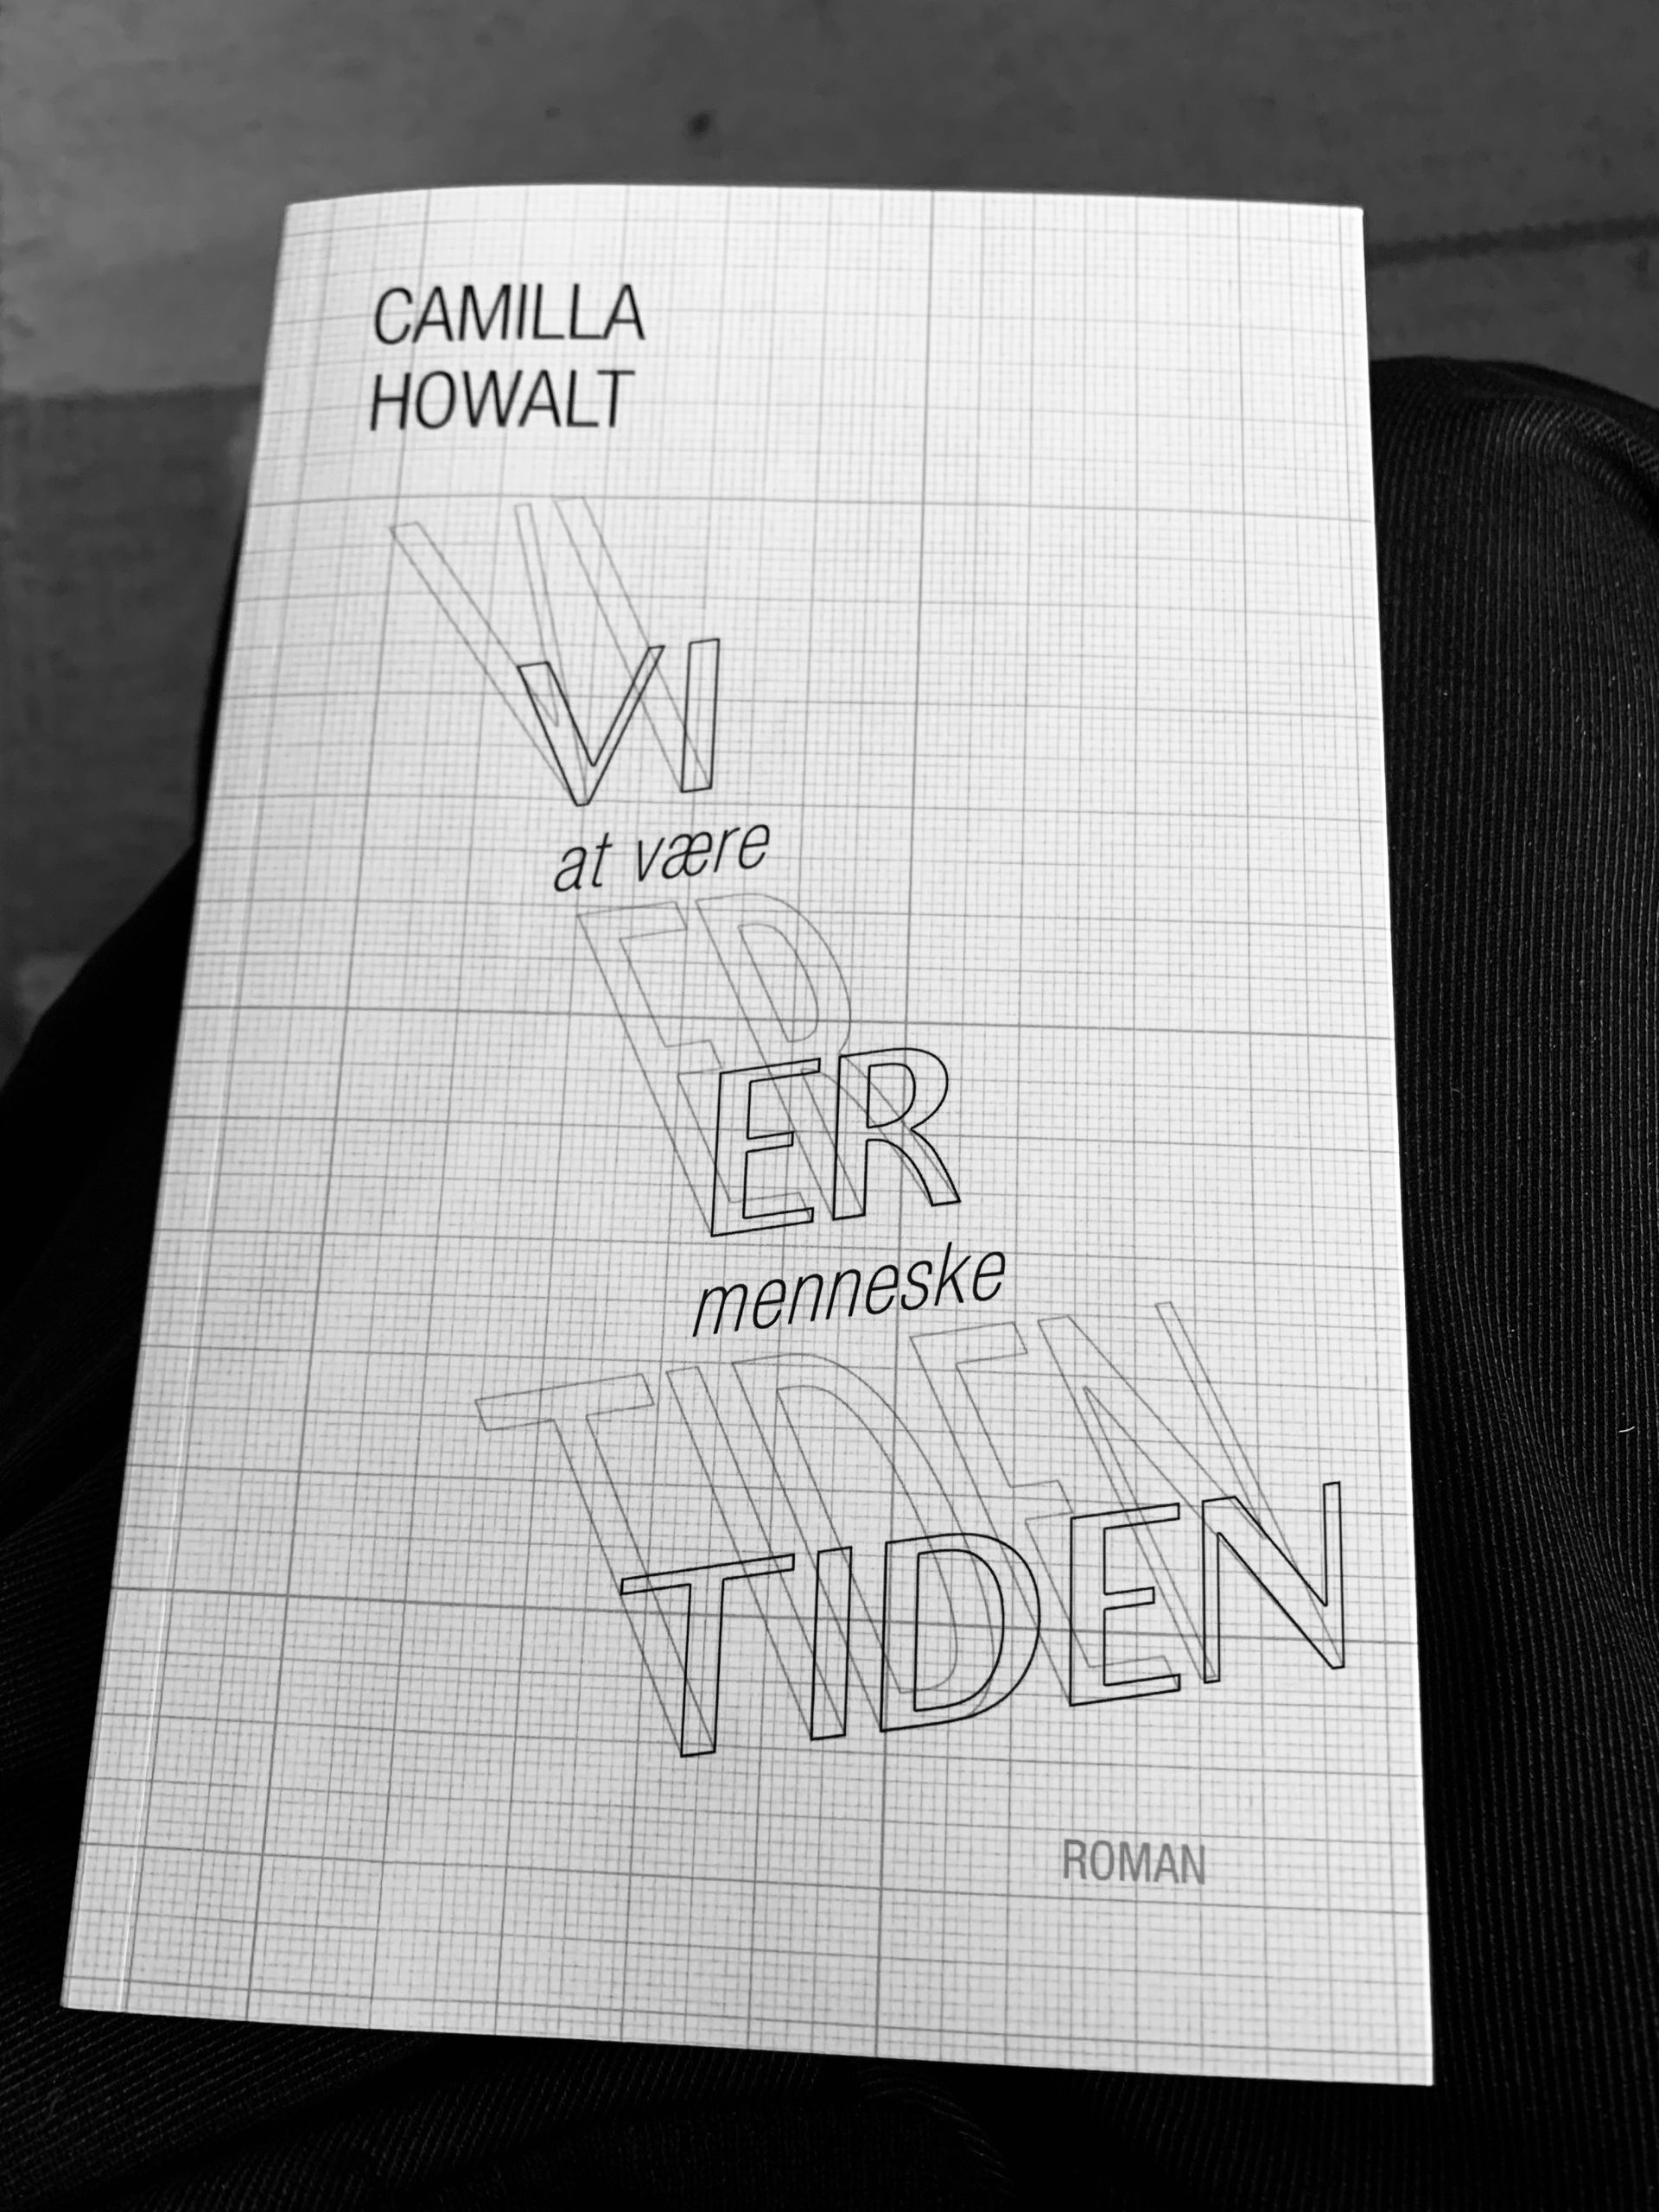 CAMILLA
HOWALT
VI
at være
ER
menneske
TIDEN
ROMAN